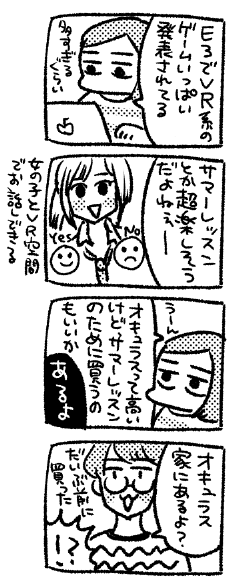 E3でVR系の
ゲームいっぱい
発表されてる
多すぎる
ぐらい
サマーレッスン
とか超楽しそう
だよねぇー
No
Yes
女の子とVR空間
でお話しできる
うーん
オキュラスって高い
けどサマーレッスン
のために買うの
もいいか
あるよ
オキュラス
家にあるよ?
だいぶ前に
買った
!?